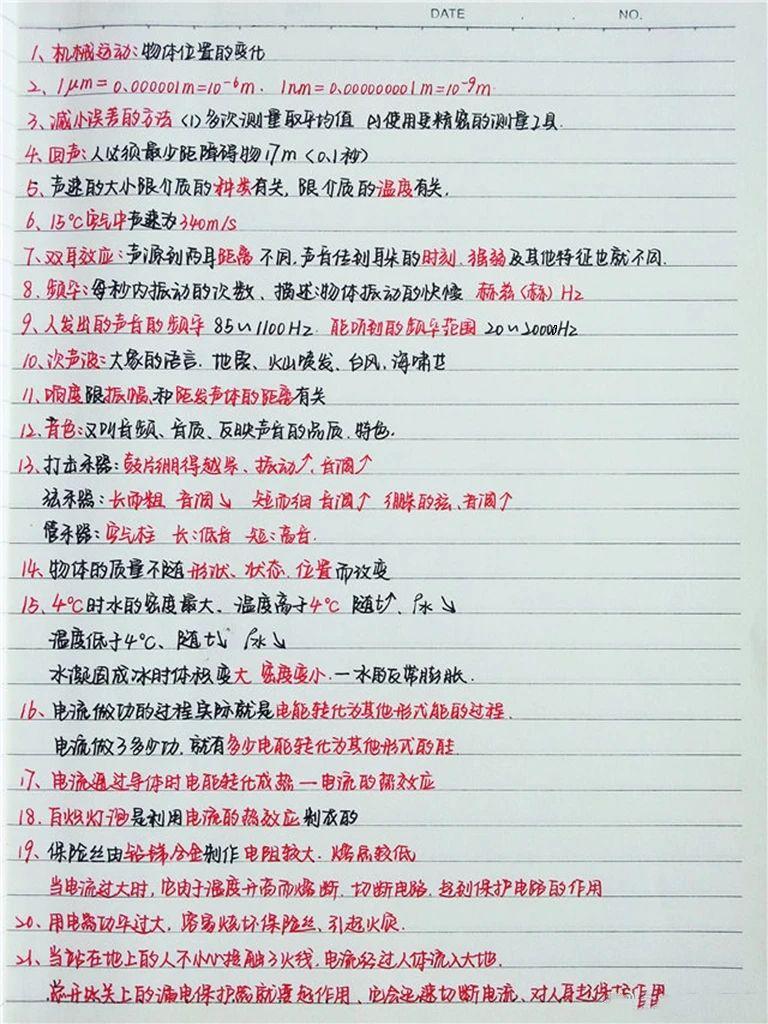 DATE . . NO.
1、机械运动:物体位置的变化
2、1μm=0.000001m=10⁻⁶m. 1nm=0.000000001m=10⁻⁹m
3、减小误差的方法 (1)多次测量取平均值 (2)使用更精密的测量工具.
4、回声:人必须最少距障碍物17m(0.1秒)
5、声速的大小跟介质的种类有关,跟介质的温度有关.
6、15℃空气中声速为340m/s
7、双耳效应:声源到两耳距离不同,声音传到耳朵的时刻、强弱及其他特征也就不同.
8、频率:每秒内振动的次数、描述物体振动的快慢 赫兹(赫)Hz
9、人发出的声音的频率 85~1100Hz. 能听到的频率范围 20~20000Hz
10、次声波:大象的语言.地震、火山喷发、台风、海啸
11、响度跟振幅和距发声体的距离有关
12、音色:又叫音频、音质、反映声音的品质.特色.
13、打击乐器:鼓片绷得越紧、振动↑、音调↑
弦乐器:长而粗 音调↘ 短而细 音调↑ 绷紧的弦、音调↑
管乐器:空气柱 长:低音 短:高音.
14、物体的质量不随形状、状态、位置而改变
15、4℃时水的密度最大、温度高于4℃ 随t↑、ρ水↘
温度低于4℃、随t↘ ρ水↘
水凝固成冰时体积变大 密度变小.一水的反常膨胀.
16、电流做功的过程实际就是电能转化为其他形式能的过程.
电流做了多少功.就有多少电能转化为其他形式的能
17、电流通过导体时电能转化成热一电流的热效应
18、白炽灯泡是利用电流的热效应制成的
19、保险丝由铅锑合金制作 电阻较大.熔点较低
当电流过大时,它由于温度升高而熔断.切断电路.起到保护电路的作用
20、用电器功率过大,容易烧坏保险丝、引起火灾.
21、当站在地上的人不小心接触了火线.电流经过人体流入大地.
总开关上的漏电保护器就要起作用、它会迅速切断电流、对人身起保护作用